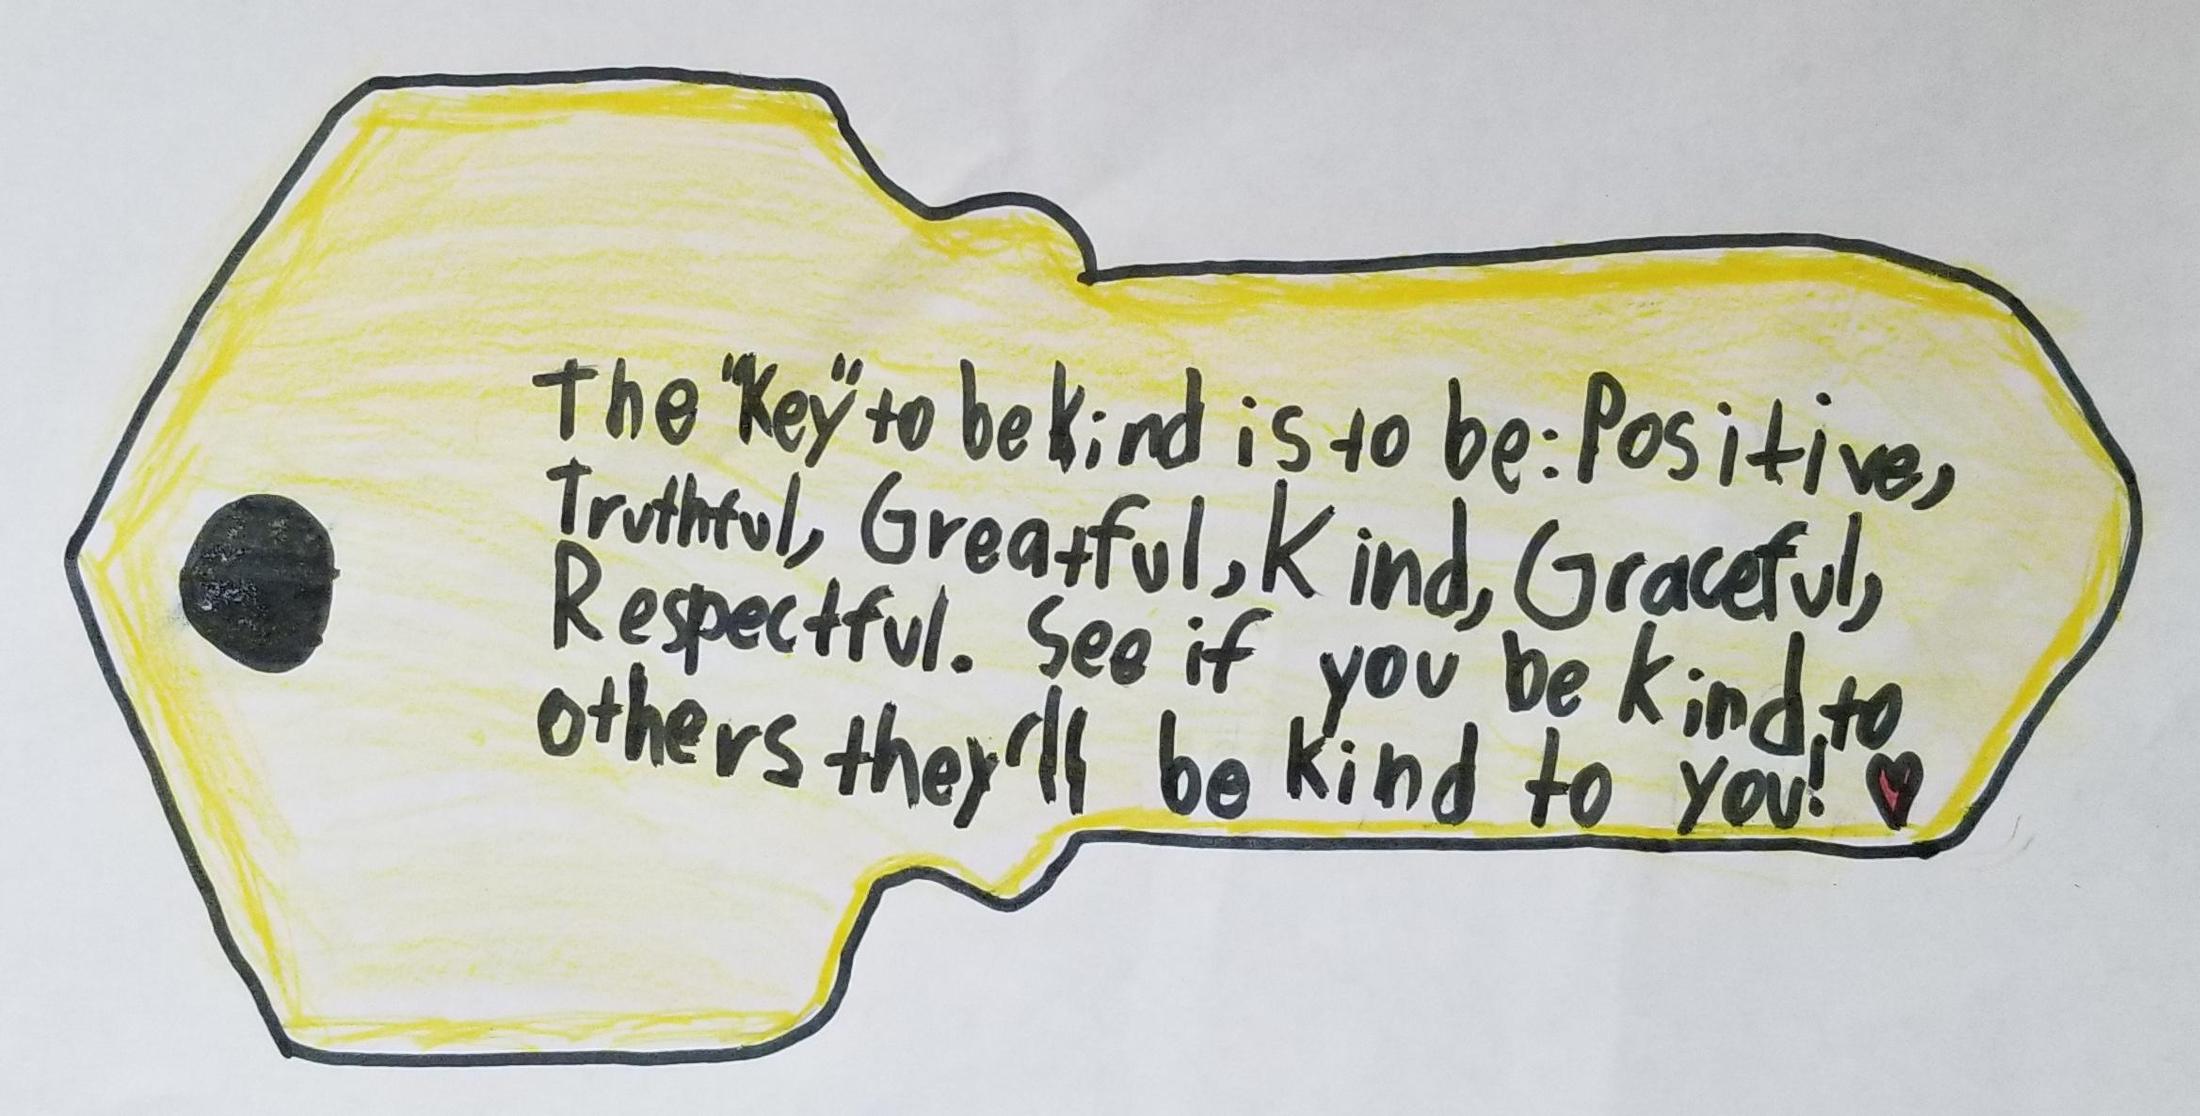 The "Key" to be kind is to be: Positive,
Truthful, Greatful, Kind, Graceful,
Respectful. See if you be kind, to
others they'll be kind to you!